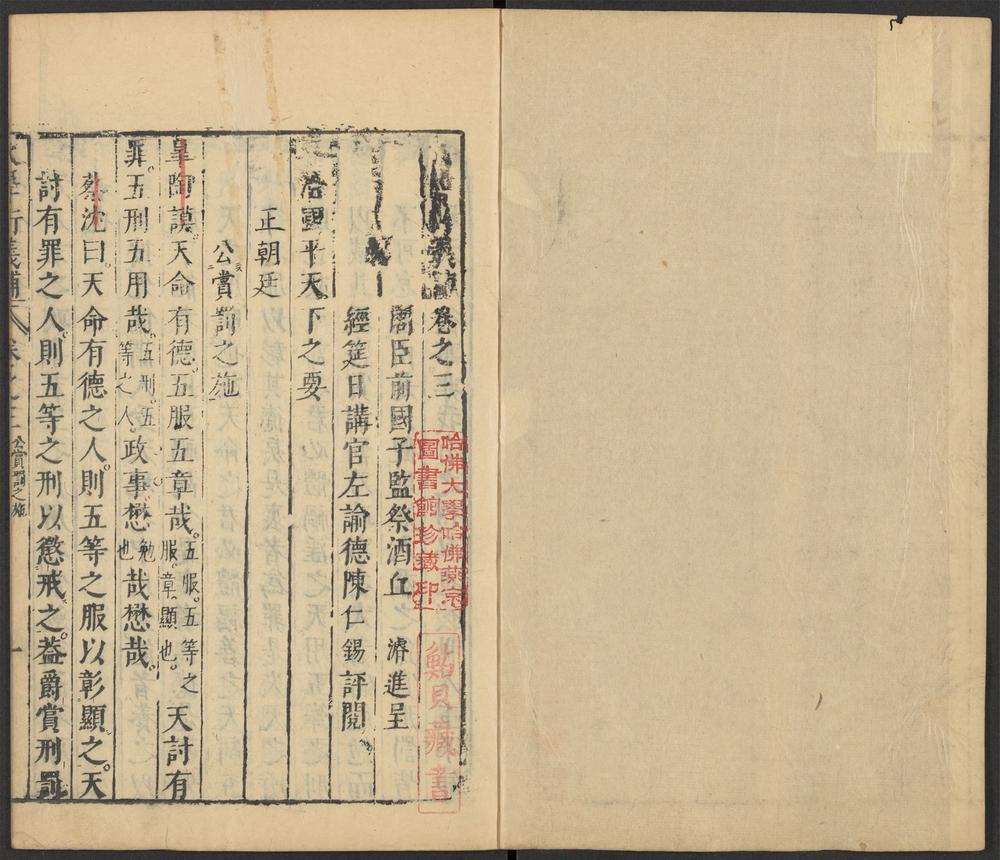 義補卷之三
閣臣前國子監祭酒丘 濬進呈
經筵日講官左諭德陳仁錫評閱
治國平天下之要
正朝廷
公賞罰之施
皐陶謨天命有德五服五章哉五服五等之服章顯也天討有
罪五刑五用哉五刑五等之人政事懋勉也哉懋哉
蔡沈曰天命有德之人則五等之服以彰顯之天
討有罪之人則五等之刑以懲戒之葢爵賞刑罰
衍義補 卷之三 公賞罰之施 一
哈佛大學哈佛燕京
圖書館珍藏印
藏書